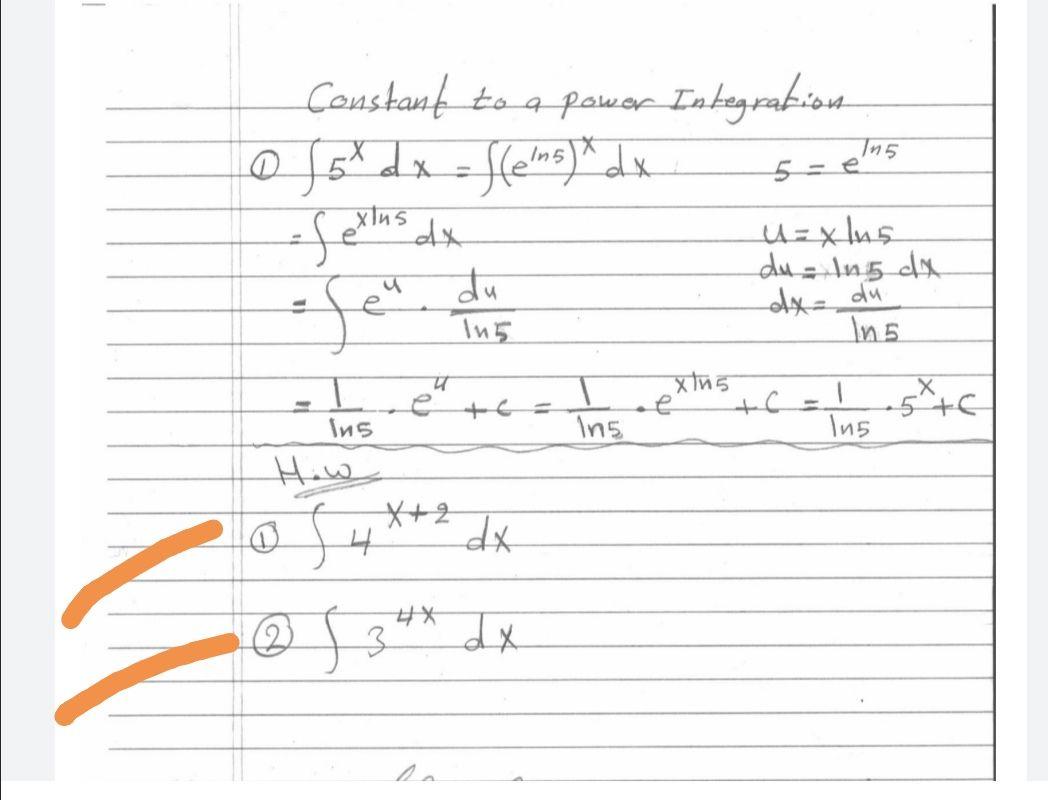 Constant to a power Integration
① ∫ 5^x dx = ∫(e^{ln5})^x dx    5 = e^{ln5}
= ∫ e^{xln5} dx    u = x ln5
du = ln5 dx
= ∫ e^u . du/ln5    dx = du/ln5
= 1/ln5 . e^u + c = 1/ln5 . e^{xln5} + C = 1/ln5 . 5^x + C
H.w
① ∫ 4^{x+2} dx
② ∫ 3^{4x} dx